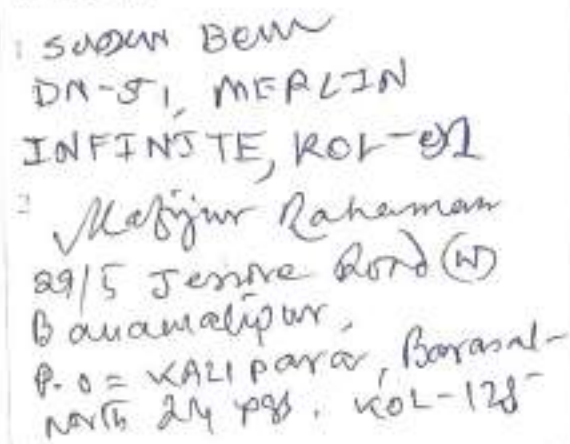 1
DN-51, MERLIN
INFINITE, KOL-91
2
Mafijur Rahaman
29/5 Jessore Road (W)
Banamalipur,
P.O = KALI para, Barasat-
North 24 pgs. KOL-125